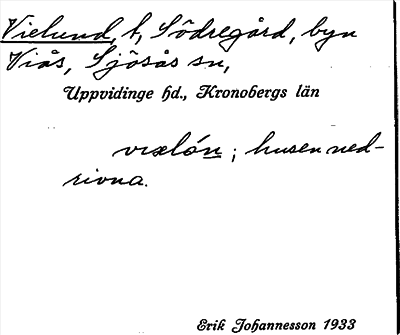 Vielund, t, Södregård, byn
Viås, Sjösås sn,
Uppvidinge hd., Kronobergs län
; husen ned-
rivna.
Erik Johannesson 1933